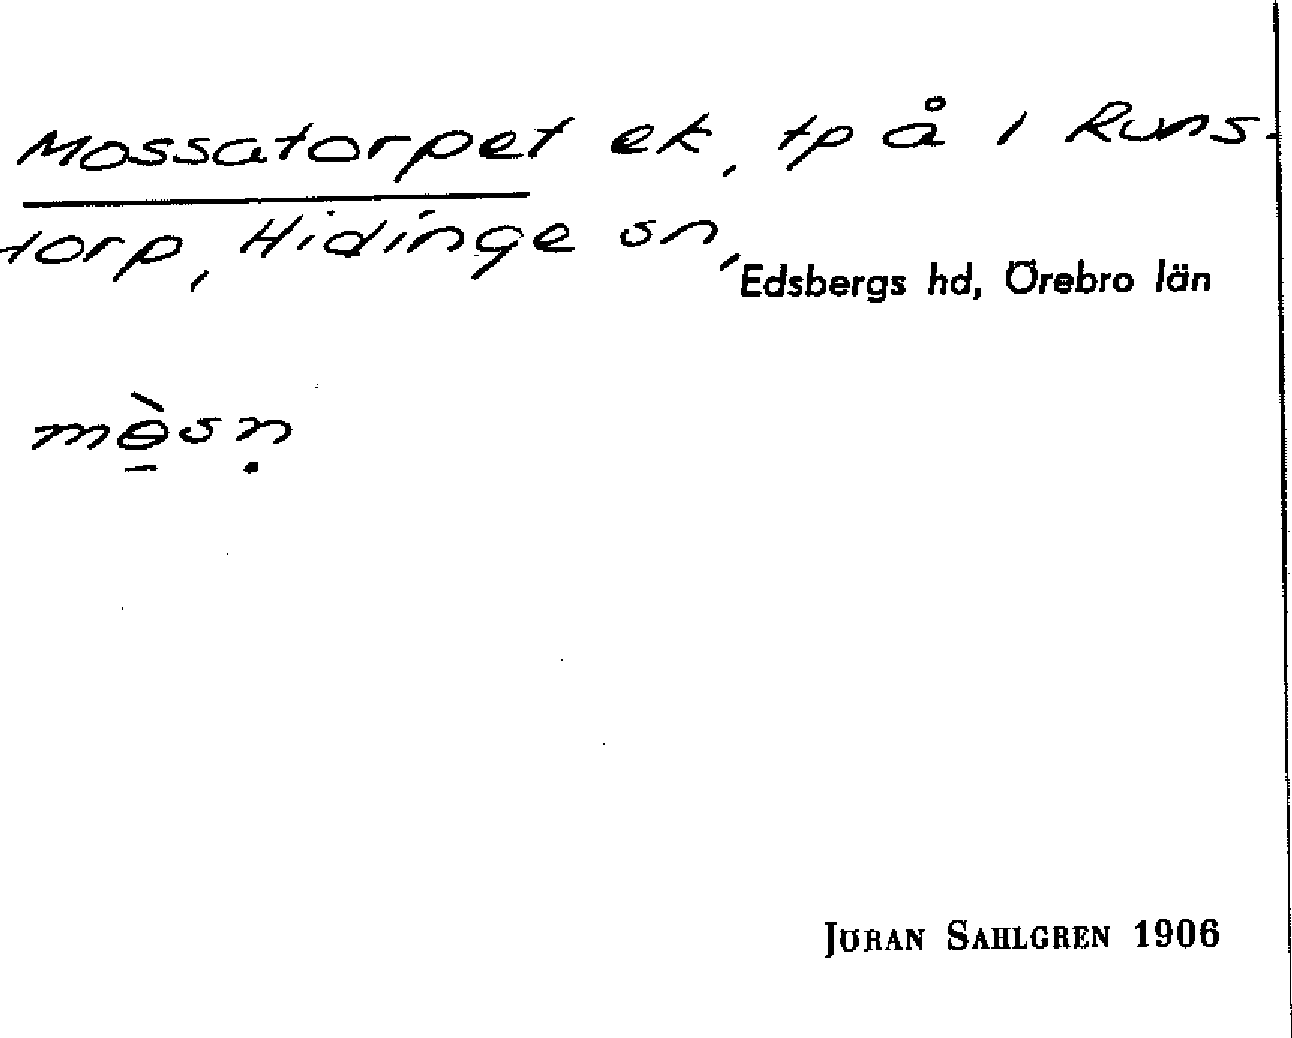 Mossatorpet ek, tp å 1 Runs-
torp, Hidinge sn,
Edsbergs hd, Örebro län
mɵ̠̀sṇ
JÖRAN SAHLGREN 1906